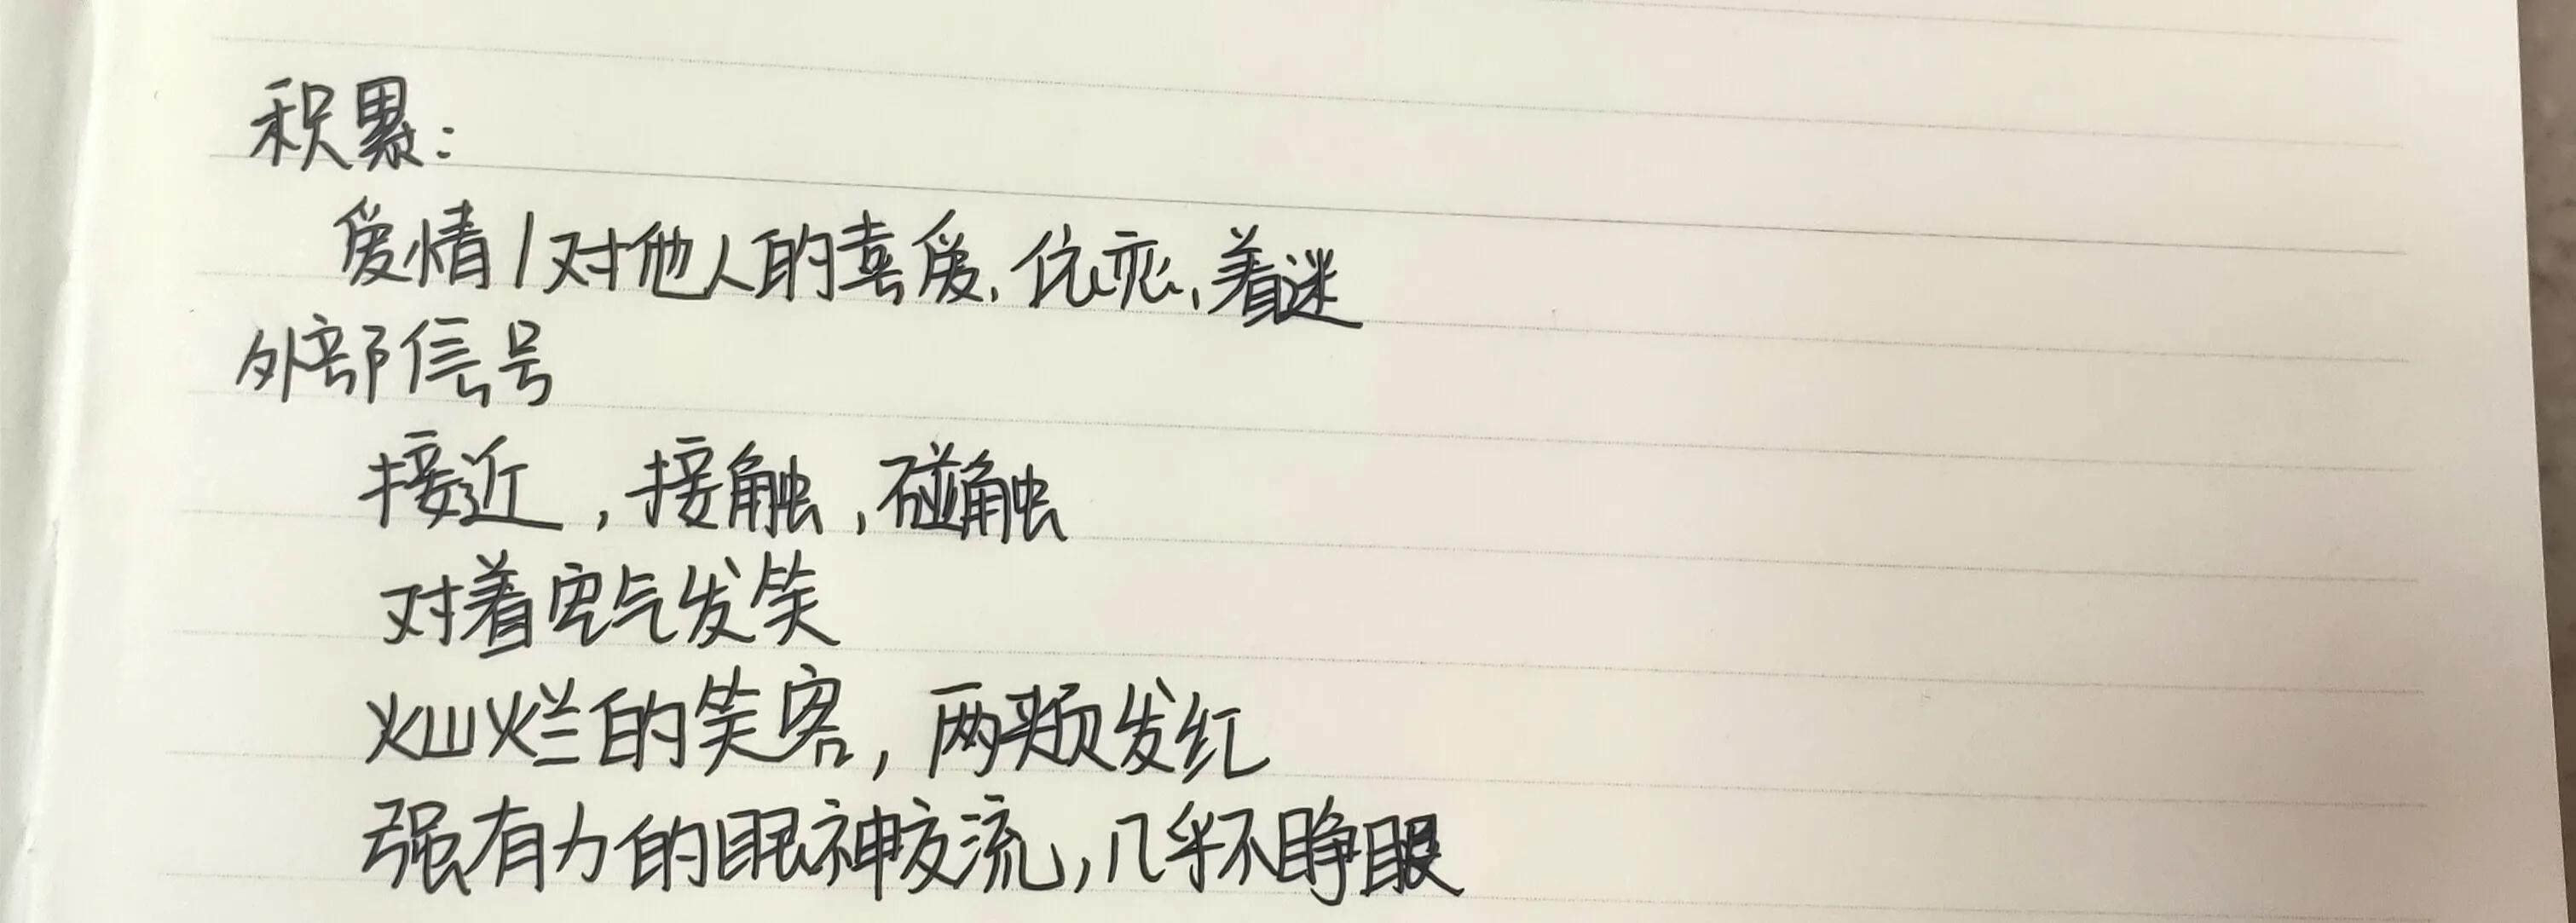 积累：
爱情/对他人的喜爱、依恋、着迷
外部信号
接近，接触，碰触
对着空气发笑
灿烂的笑容，两颊发红
强有力的眼神交流，几乎不睁眼